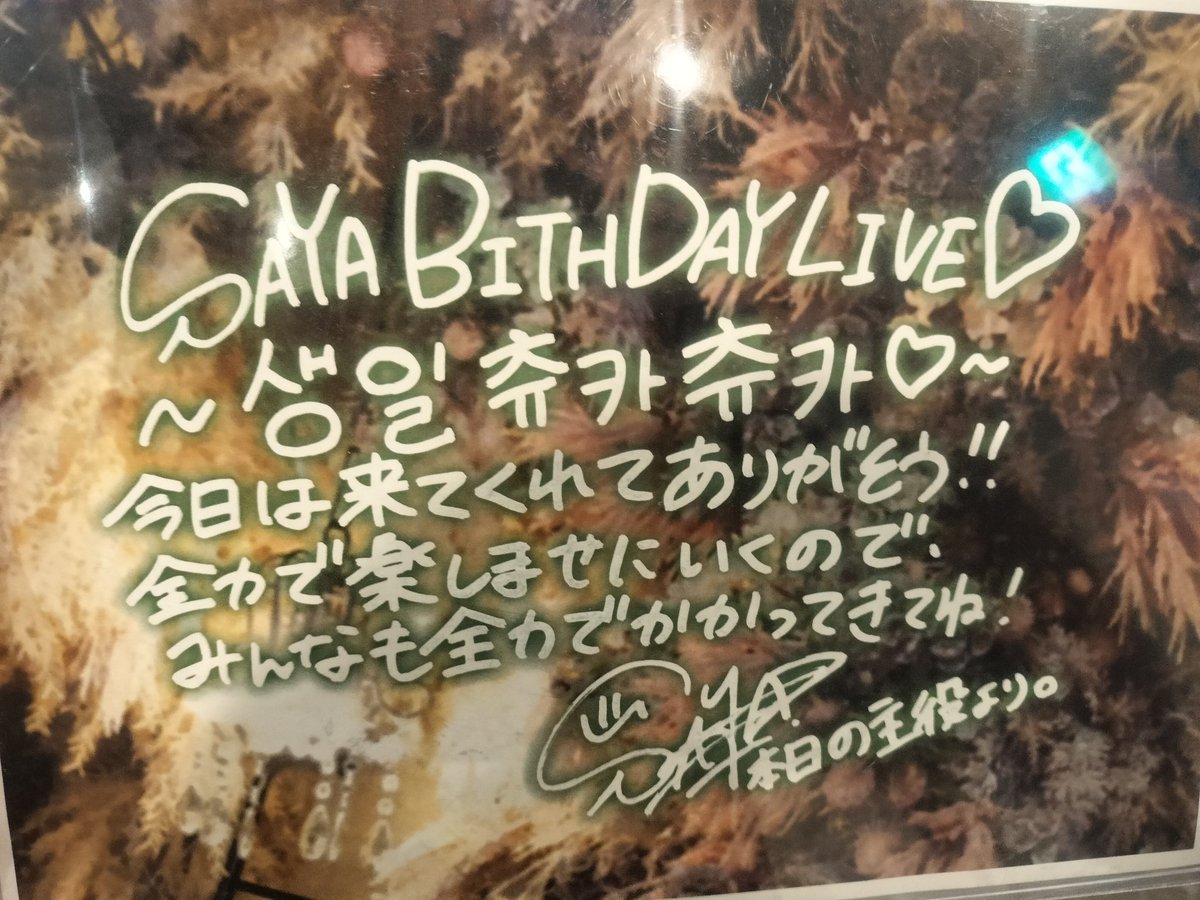 SAYA BITHDAY LIVE♡
~생일 츄카츄카♡~
今日は来てくれてありがとう!!
全力で楽しませにいくので、
みんなも全力でかかってきてね!
SAYA
本日の主役より。